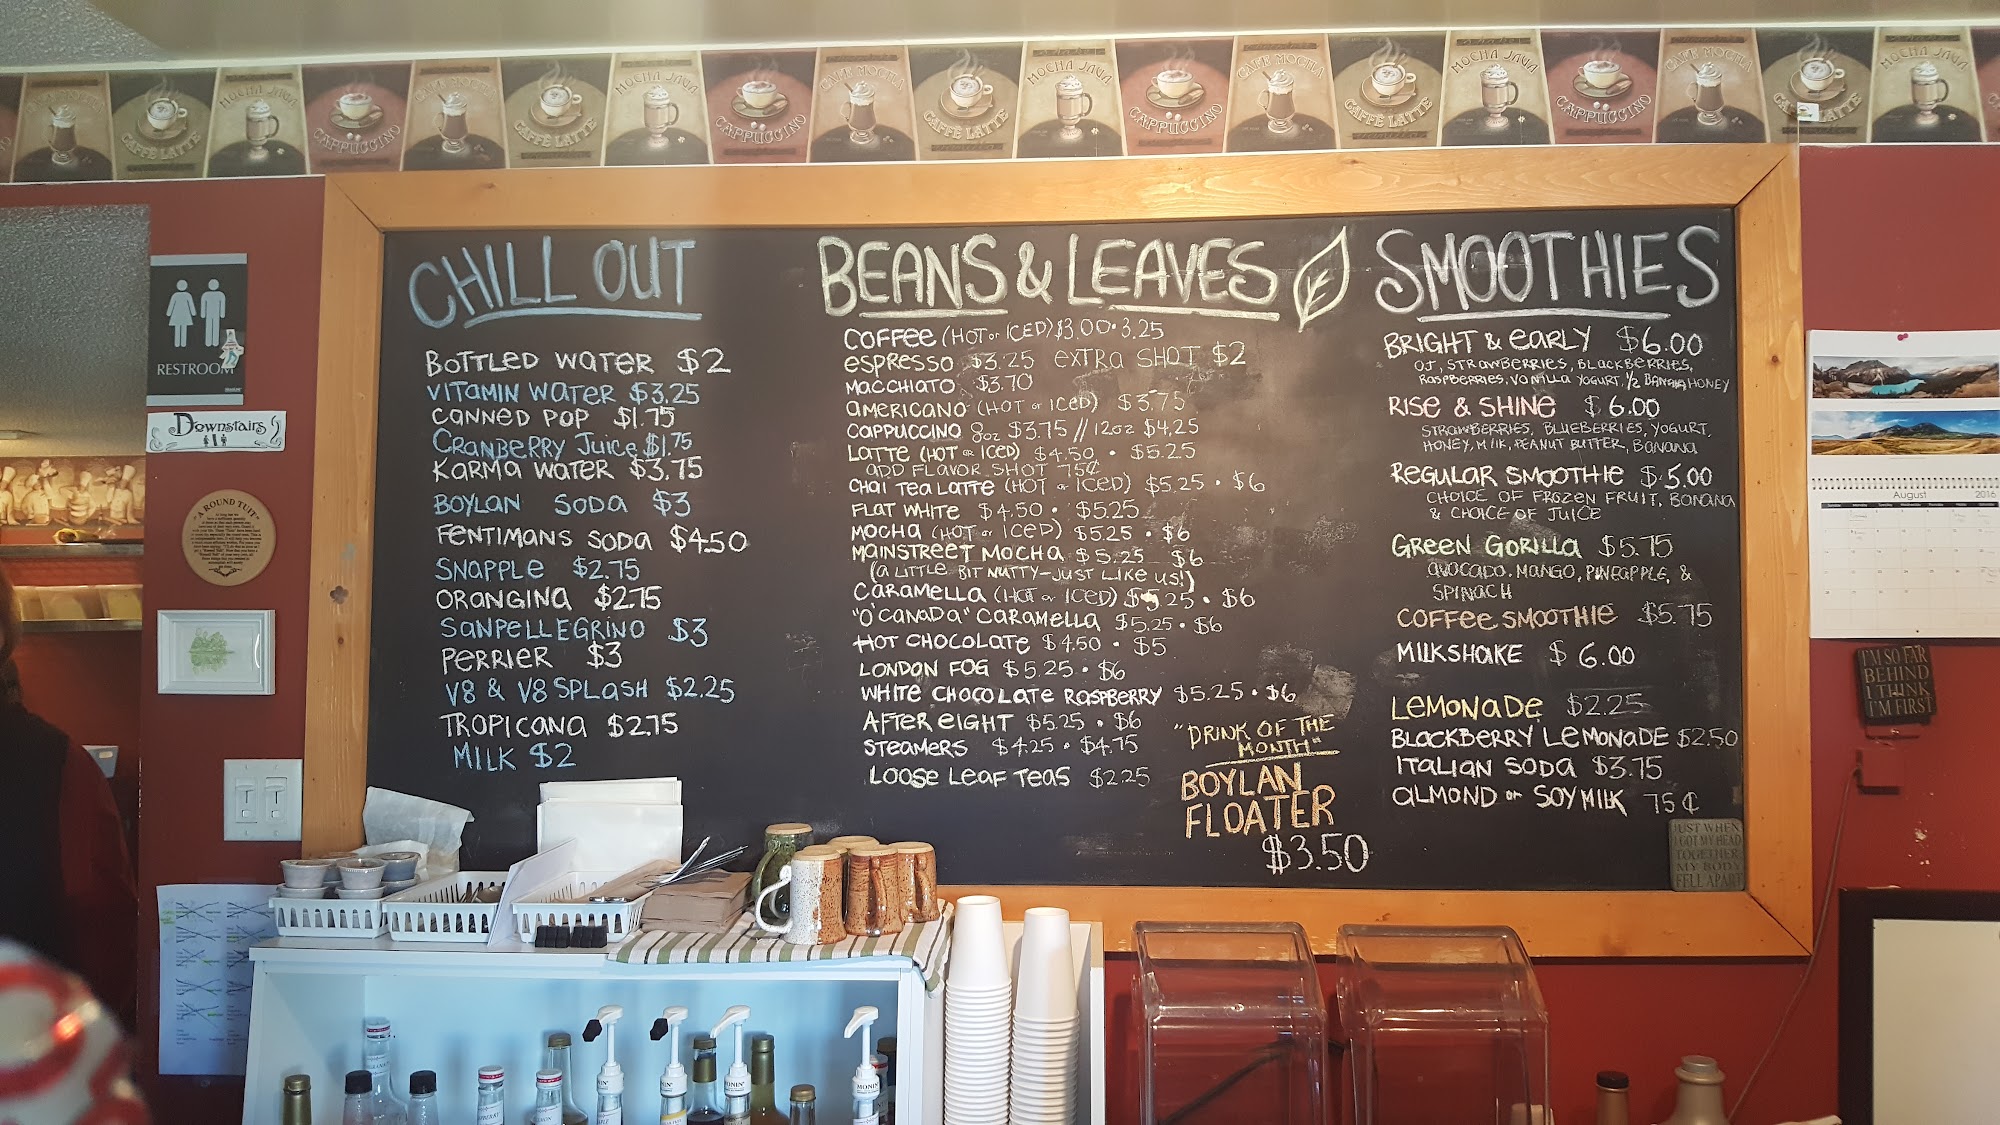 MOCHA JAVA
CAPPUCCINO
CAFE MOCHA
CAFFE LATTE
MOCHA JAVA
CAPPUCCINO
CAFE MOCHA
CAFFE LATTE
MOCHA JAVA
CAPPUCCINO
CAFE MOCHA
CAFFE LATTE
MOCHA JAVA
CAPPUCCINO
CAFE MOCHA
CAFFE LATTE
MOCHA JAVA
RESTROOM
Downstairs
A ROUND TUIT
CHILL OUT
BOTTLED WATER $2
VITAMIN WATER $3.25
CANNED POP $1.75
CRANBERRY JUICE $1.75
KARMA WATER $3.75
BOYLAN SODA $3
FENTIMANS SODA $4.50
SNAPPLE $2.75
ORANGINA $2.75
SANPELLEGRINO $3
PERRIER $3
V8 & V8 SPLASH $2.25
TROPICANA $2.75
MILK $2
BEANS & LEAVES
COFFEE (HOT or ICED) $3.00 • 3.25
ESPRESSO $3.25 EXTRA SHOT $2
MACCHIATO $3.70
AMERICANO (HOT or ICED) $3.75
CAPPUCCINO 8oz $3.75 // 12oz $4.25
LATTE (HOT or ICED) $4.50 • $5.25
ADD FLAVOR SHOT 75¢
CHAI TEA LATTE (HOT or ICED) $5.25 • $6
FLAT WHITE $4.50 • $5.25
MOCHA (HOT or ICED) $5.25 • $6
MAINSTREET MOCHA $5.25 $6
(A LITTLE BIT NUTTY-JUST LIKE US!)
CARAMELLA (HOT or ICED) $5.25 • $6
"O'CANADA" CARAMELLA $5.25 • $6
HOT CHOCOLATE $4.50 • $5
LONDON FOG $5.25 • $6
WHITE CHOCOLATE RASPBERRY $5.25 • $6
AFTER EIGHT $5.25 • $6
STEAMERS $4.25 • $4.75
LOOSE LEAF TEAS $2.25
"DRINK OF THE
MONTH"
BOYLAN
FLOATER
$3.50
SMOOTHIES
BRIGHT & EARLY $6.00
OJ, STRAWBERRIES, BLACKBERRIES,
RASPBERRIES, VANILLA YOGURT, 1/2 BANANA HONEY
RISE & SHINE $6.00
STRAWBERRIES, BLUEBERRIES, YOGURT,
HONEY, MILK, PEANUT BUTTER, BANANA
REGULAR SMOOTHIE $5.00
CHOICE OF FROZEN FRUIT, BANANA
& CHOICE OF JUICE
GREEN GORILLA $5.75
AVOCADO, MANGO, PINEAPPLE, &
SPINACH
COFFEE SMOOTHIE $5.75
MILKSHAKE $6.00
LEMONADE $2.25
BLACKBERRY LEMONADE $2.50
ITALIAN SODA $3.75
ALMOND or SOY MILK 75¢
JUST WHEN
I GOT MY HEAD
TOGETHER
MY BODY
FELL APART
August 2016
I'M SO FAR
BEHIND
I THINK
I'M FIRST
MONIN